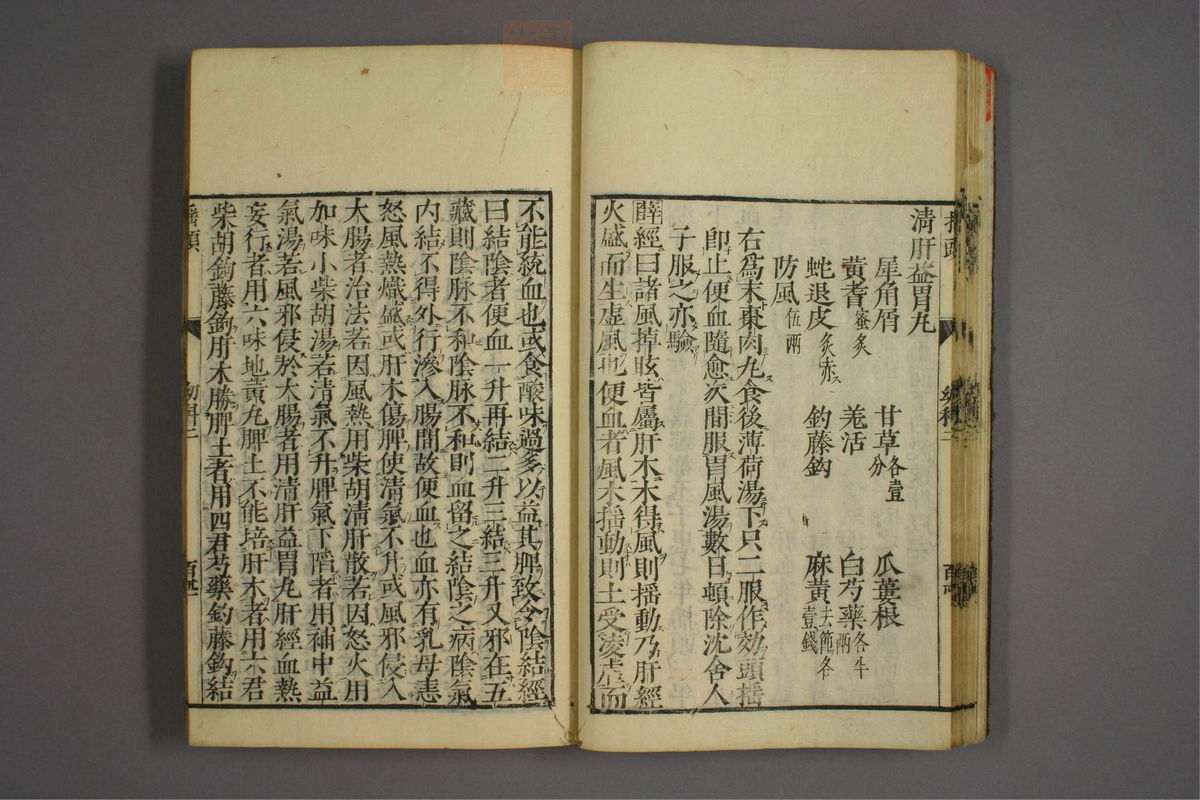 清肝益胃丸
犀角屑 甘草各壹分 瓜蔞根
黄耆蜜炙 羗活 白芍藥各半兩
蛇退皮炙赤 釣藤鈎 麻黄去節各壹錢
防風伍兩
右爲末棗肉丸食後薄荷湯下只二服作効頭揺
卽止便血隨愈次間服胃風湯數日頓除沈舍人
子服之亦驗
薛經曰諸風掉眩皆屬肝木木得風則揺動乃肝經
火盛而生虚風也便血者風木揺動則土受凌虐而
不能統血也或食酸味過多以益其脾致令陰結經
曰結陰者便血一升再結二升三結三升又邪在五
藏則陰脉不和陰脉不和則血留之結陰之病陰氣
内結不得外行滲入腸間故便血也血亦有乳母恚
怒風熱熾盛或肝木傷脾使清氣不升或風邪侵入
大腸者治法若因風熱用柴胡清肝散若因怒火用
加味小柴胡湯若清氣不升脾氣下陷者用補中益
氣湯若風邪侵於大腸者用清肝益胃丸肝經血熱
妄行者用六味地黄丸脾土不能培肝木者用六君
柴胡鈎藤鈎肝木勝脾土者用四君芍藥鈎藤鈎結
揺頭
幼科二